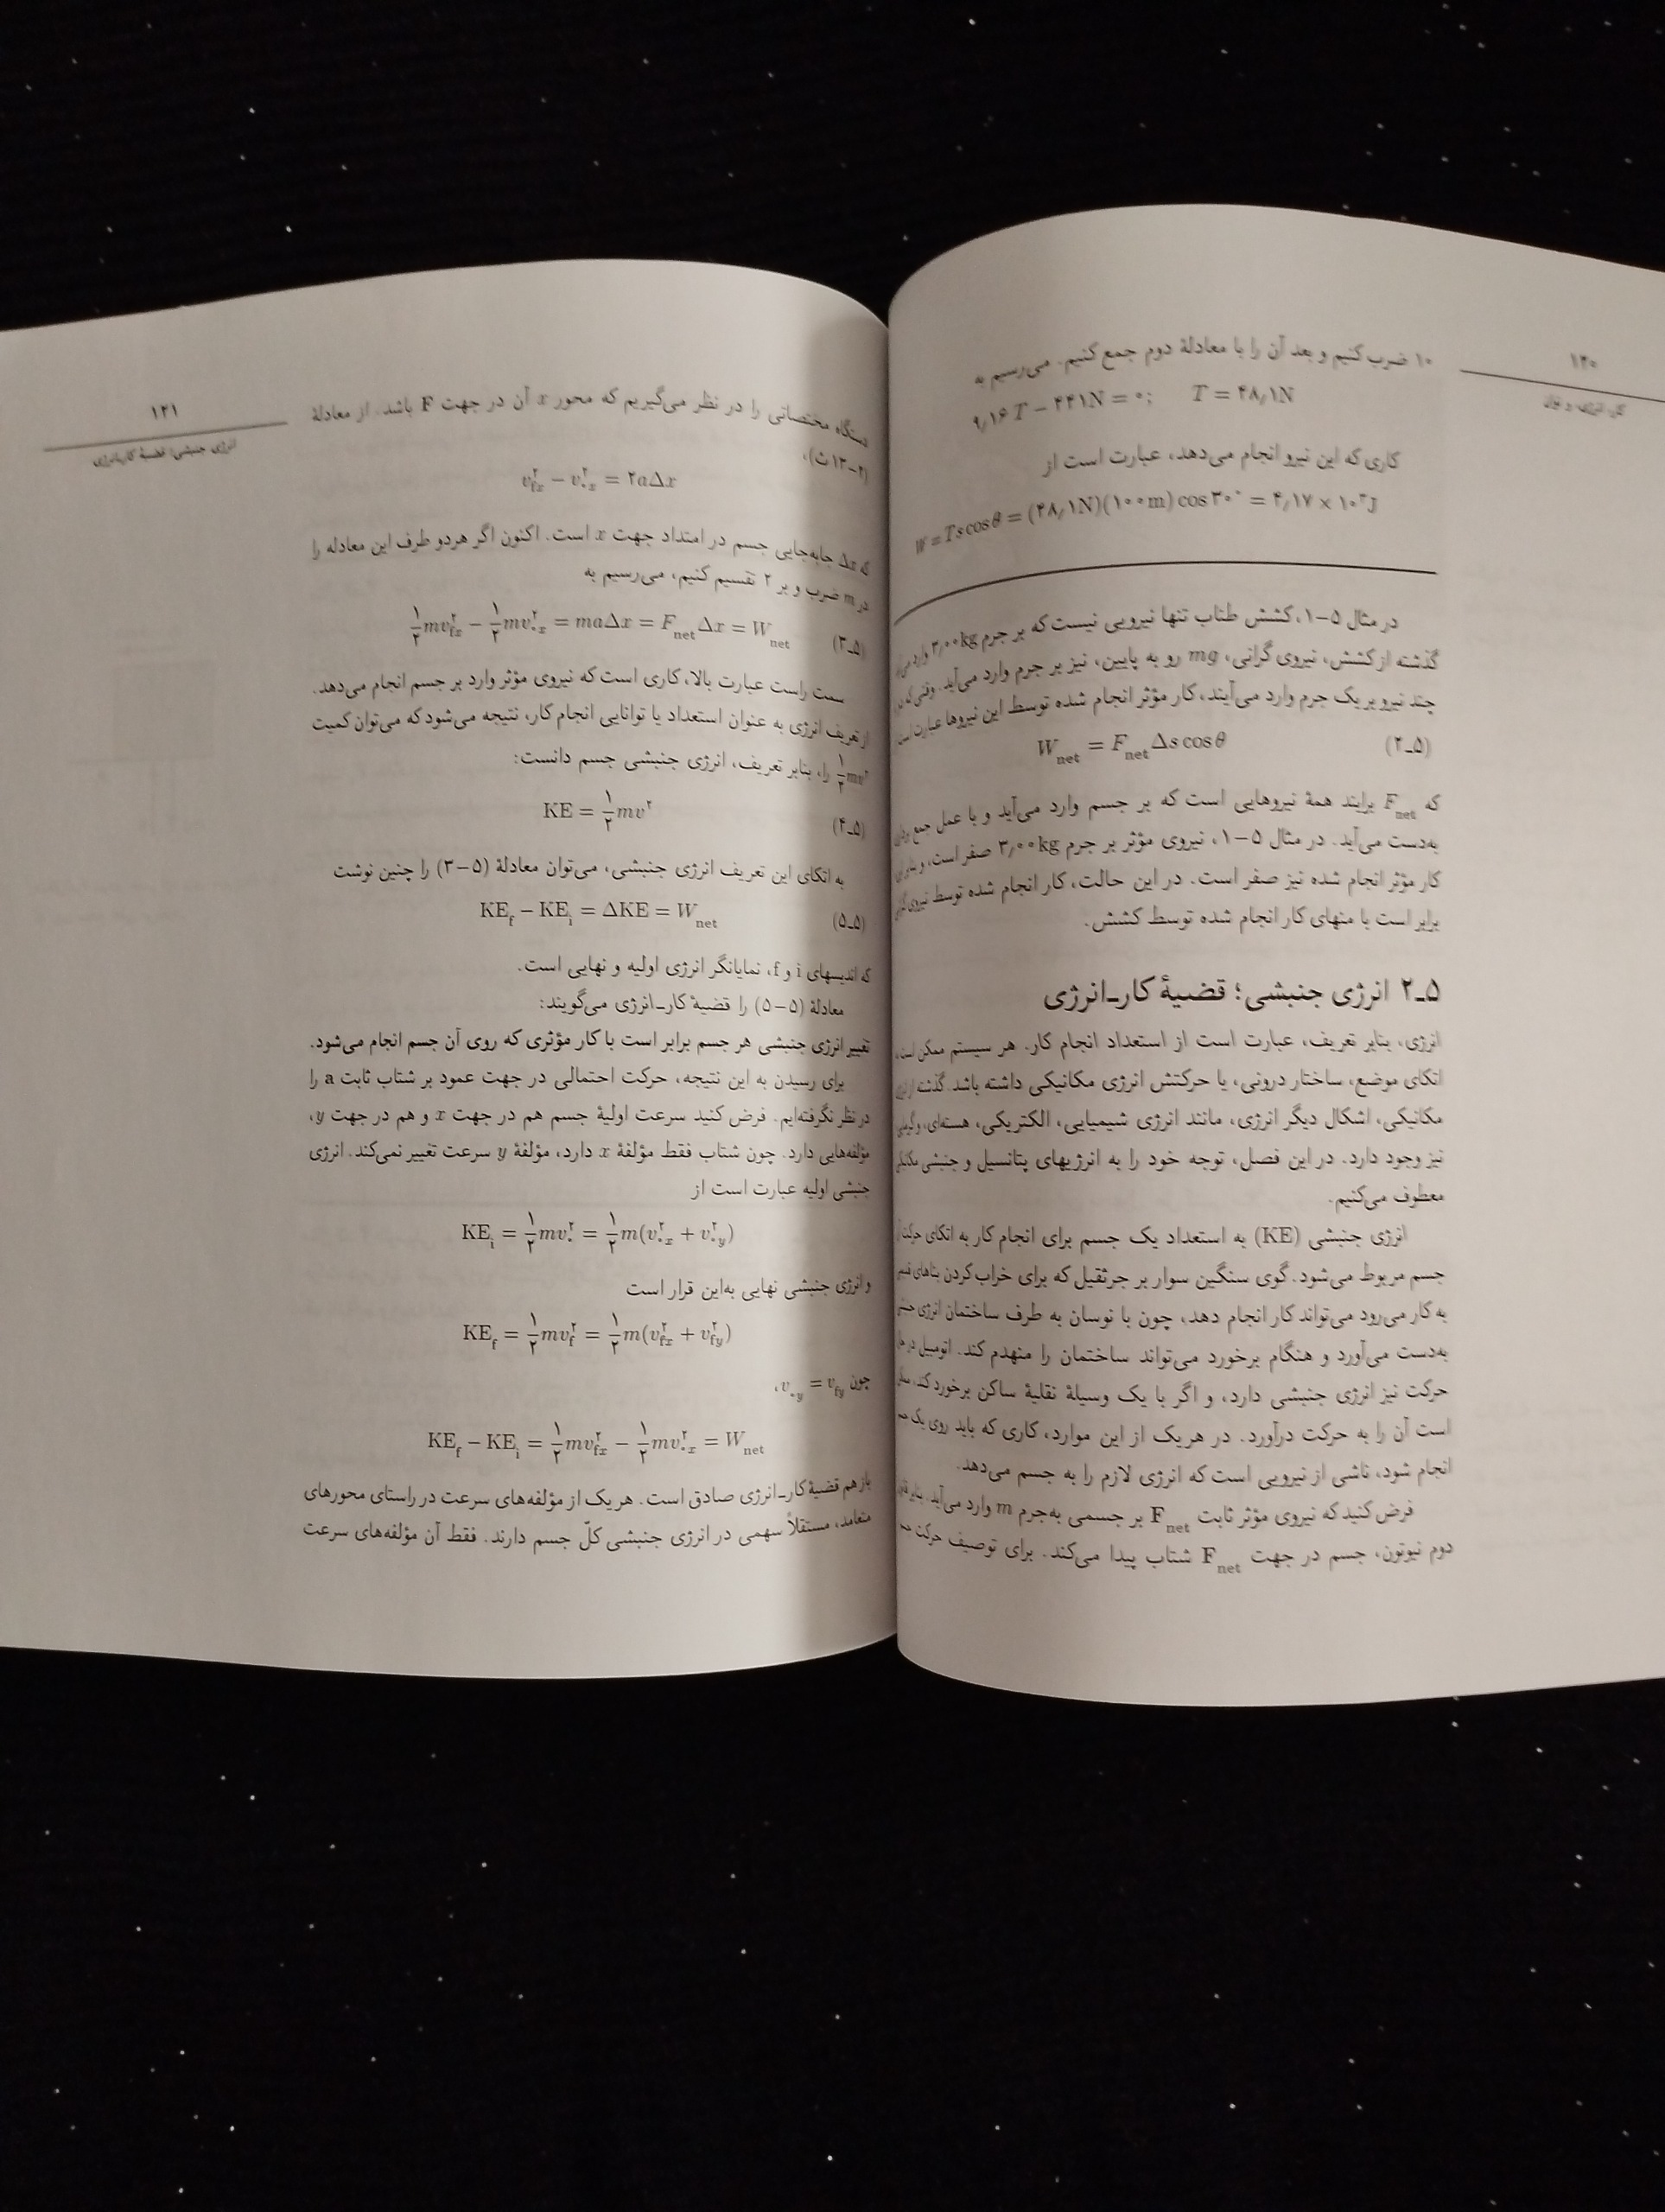 ۱۲۰
کار، انرژی، و توان
۱۰ ضرب کنیم و بعد آن را با معادلهٔ دوم جمع کنیم. می‌رسیم به
۹٫۱۶ T − ۴۴۱N = ۰; T = ۴۸٫۱N
کاری که این نیرو انجام می‌دهد، عبارت است از
W = Ts cos θ = (۴۸٫۱N)(۱۰۰m) cos ۳۰° = ۴٫۱۷ × ۱۰³J
در مثال ۵−۱، کشش طناب تنها نیرویی نیست که بر جرم ۳٫۰۰kg وارد می‌آید
گذشته از کشش، نیروی گرانی، mg رو به پایین، نیز بر جرم وارد می‌آید. وقتی که
چند نیرو بر یک جرم وارد می‌آیند، کار مؤثر انجام شده توسط این نیروها عبارت است
W_net = F_net Δs cos θ (۵ـ۲)
که F_net برایند همهٔ نیروهایی است که بر جسم وارد می‌آید و با عمل جمع برداری
به‌دست می‌آید. در مثال ۵−۱، نیروی مؤثر بر جرم ۳٫۰۰kg صفر است، و بنابر این
کار مؤثر انجام شده نیز صفر است. در این حالت، کار انجام شده توسط نیروی گرانی
برابر است با منهای کار انجام شده توسط کشش.
۵ـ۲ انرژی جنبشی؛ قضیهٔ کارـانرژی
انرژی، بنابر تعریف، عبارت است از استعداد انجام کار. هر سیستم ممکن است
اتکای موضع، ساختار درونی، یا حرکتش انرژی مکانیکی داشته باشد. گذشته از انرژی
مکانیکی، اشکال دیگر انرژی، مانند انرژی شیمیایی، الکتریکی، هسته‌ای، و گرمایی
نیز وجود دارد. در این فصل، توجه خود را به انرژیهای پتانسیل و جنبشی مکانیکی
معطوف می‌کنیم.
انرژی جنبشی (KE) به استعداد یک جسم برای انجام کار به اتکای حرکت آن
جسم مربوط می‌شود. گوی سنگین سوار بر جرثقیل که برای خراب کردن بناهای قدیمی
به کار می‌رود می‌تواند کار انجام دهد، چون با نوسان به طرف ساختمان انرژی جنبشی
به‌دست می‌آورد و هنگام برخورد می‌تواند ساختمان را منهدم کند. اتومبیل در حال
حرکت نیز انرژی جنبشی دارد، و اگر با یک وسیلهٔ نقلیهٔ ساکن برخورد کند، ممکن
است آن را به حرکت درآورد. در هر یک از این موارد، کاری که باید روی یک جسم
انجام شود، ناشی از نیرویی است که انرژی لازم را به جسم می‌دهد.
فرض کنید که نیروی مؤثر ثابت F_net بر جسمی به‌جرم m وارد می‌آید. بنابر قانون
دوم نیوتون، جسم در جهت F_net شتاب پیدا می‌کند. برای توصیف حرکت
۱۲۱
انرژی جنبشی؛ قضیهٔ کارـانرژی
دستگاه مختصاتی را در نظر می‌گیریم که محور x آن در جهت F باشد. از معادلهٔ
(۲−۱۳ث)،
v²_fx − v²_۰x = ۲aΔx
که Δx جابه‌جایی جسم در امتداد جهت x است. اکنون اگر هردو طرف این معادله را
در m ضرب و بر ۲ تقسیم کنیم، می‌رسیم به
½mv²_fx − ½mv²_۰x = maΔx = F_net Δx = W_net (۵ـ۳)
سمت راست عبارت بالا، کاری است که نیروی مؤثر وارد بر جسم انجام می‌دهد.
از تعریف انرژی به عنوان استعداد یا توانایی انجام کار، نتیجه می‌شود که می‌توان کمیت
½mv² را، بنابر تعریف، انرژی جنبشی جسم دانست:
KE = ½mv² (۵ـ۴)
به اتکای این تعریف انرژی جنبشی، می‌توان معادلهٔ (۵−۳) را چنین نوشت
KE_f − KE_i = ΔKE = W_net (۵ـ۵)
که اندیسهای i و f، نمایانگر انرژی اولیه و نهایی است.
معادلهٔ (۵−۵) را قضیهٔ کارـانرژی می‌گویند:
تغییر انرژی جنبشی هر جسم برابر است با کار مؤثری که روی آن جسم انجام می‌شود.
برای رسیدن به این نتیجه، حرکت احتمالی در جهت عمود بر شتاب ثابت a را
در نظر نگرفته‌ایم. فرض کنید سرعت اولیهٔ جسم هم در جهت x و هم در جهت y،
مؤلفه‌هایی دارد. چون شتاب فقط مؤلفهٔ x دارد، مؤلفهٔ y سرعت تغییر نمی‌کند. انرژی
جنبشی اولیه عبارت است از
KE_i = ½mv²_۰ = ½m(v²_۰x + v²_۰y)
و انرژی جنبشی نهایی به‌این قرار است
KE_f = ½mv²_f = ½m(v²_fx + v²_fy)
چون v_۰y = v_fy،
KE_f − KE_i = ½mv²_fx − ½mv²_۰x = W_net
باز هم قضیهٔ کارـانرژی صادق است. هر یک از مؤلفه‌های سرعت در راستای محورهای
متعامد، مستقلاً سهمی در انرژی جنبشی کلّ جسم دارند. فقط آن مؤلفه‌های سرعت